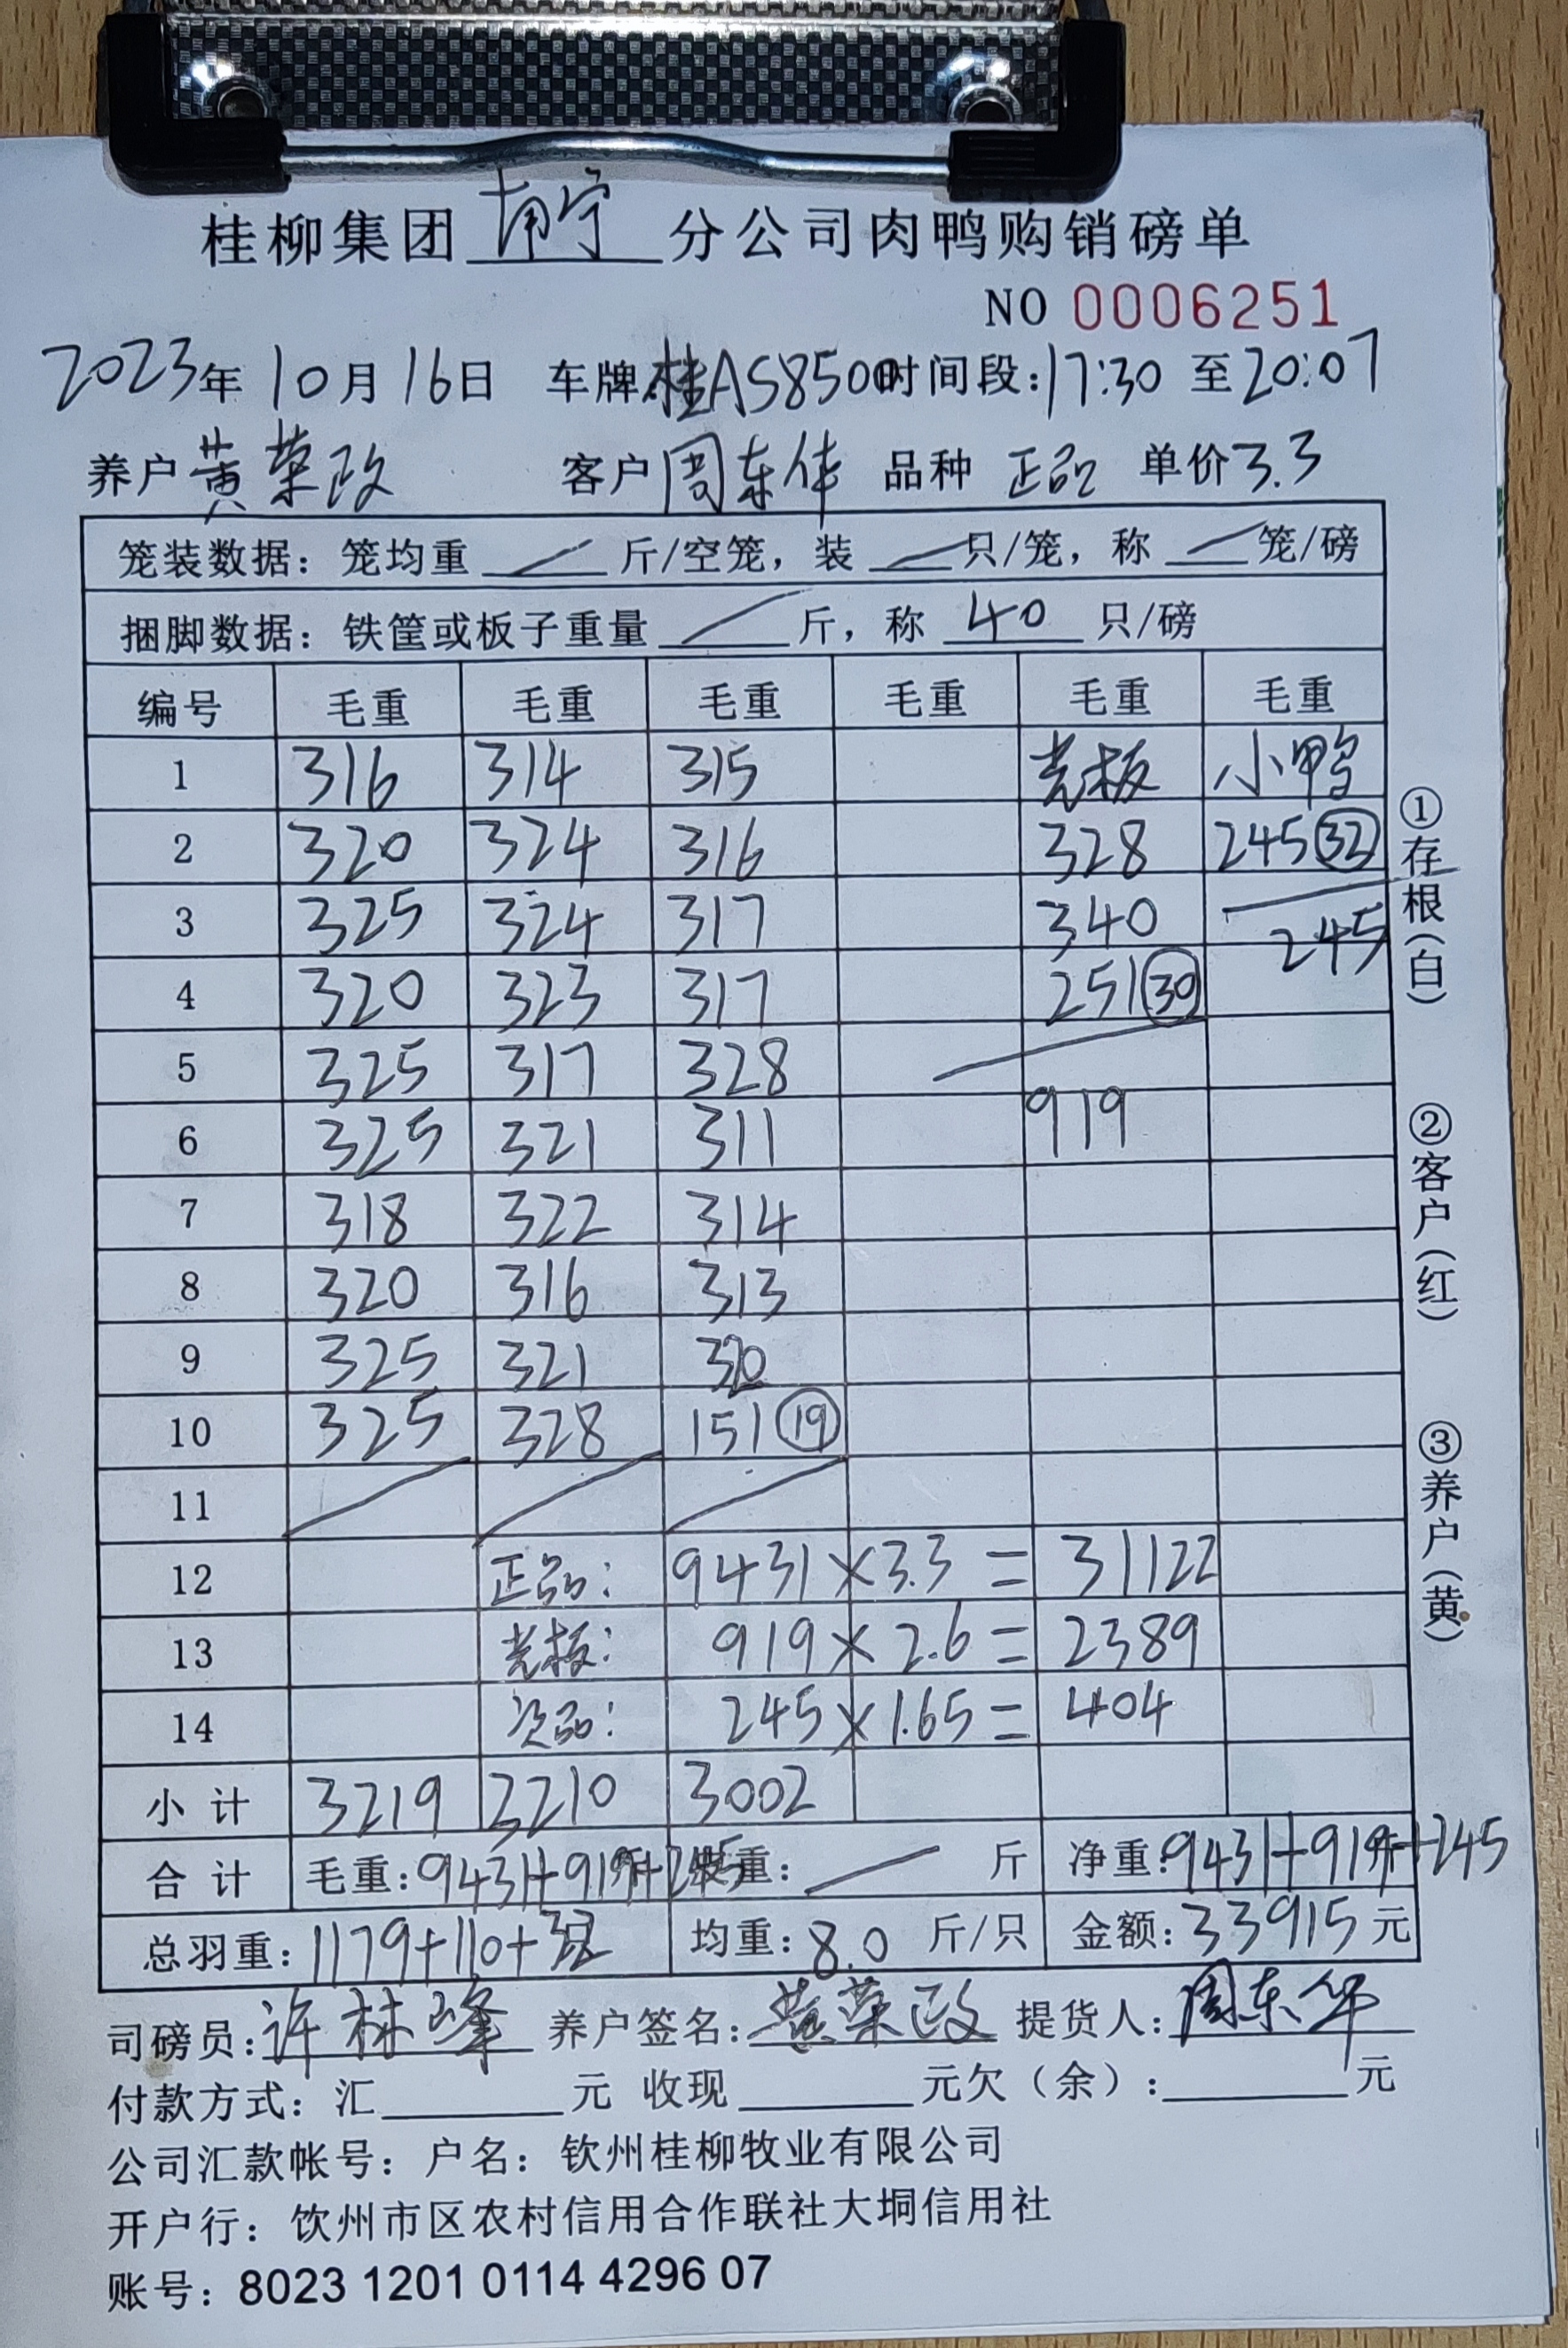 桂柳集团 南宁 分公司肉鸭购销磅单
NO 0006251
2023年10月16日 车牌桂AS850 时间段:17:30 至20:07
养户 黄荣政 客户 周东华 品种 正品 单价3.3
笼装数据：笼均重 / 斤/空笼，装 / 只/笼，称 / 笼/磅
捆脚数据：铁筐或板子重量 / 斤，称 40 只/磅
编号 毛重 毛重 毛重 毛重 毛重 毛重
1 316 314 315 光板 小鸭
2 320 324 316 328 245 32
3 325 324 317 340 245
4 320 323 317 251 30
5 325 317 328
6 325 321 311 919
7 318 322 314
8 320 316 313
9 325 321 320
10 325 328 151 19
11 / / /
12 正品: 9431×3.3 = 31122
13 光板: 919×2.6 = 2389
14 次品: 245×1.65 = 404
小计 3219 3210 3002
合计 毛重:9431+919+245 重: / 斤 净重:9431+919+245
总羽重:1179+110+32 均重:8.0 斤/只 金额:33915元
司磅员:许林峰 养户签名:黄荣政 提货人:周东华
付款方式：汇 元 收现 元欠（余）: 元
公司汇款帐号：户名：钦州桂柳牧业有限公司
开户行：饮州市区农村信用合作联社大垌信用社
账号：8023 1201 0114 4296 07
①存根（白）
②客户（红）
③养户（黄）